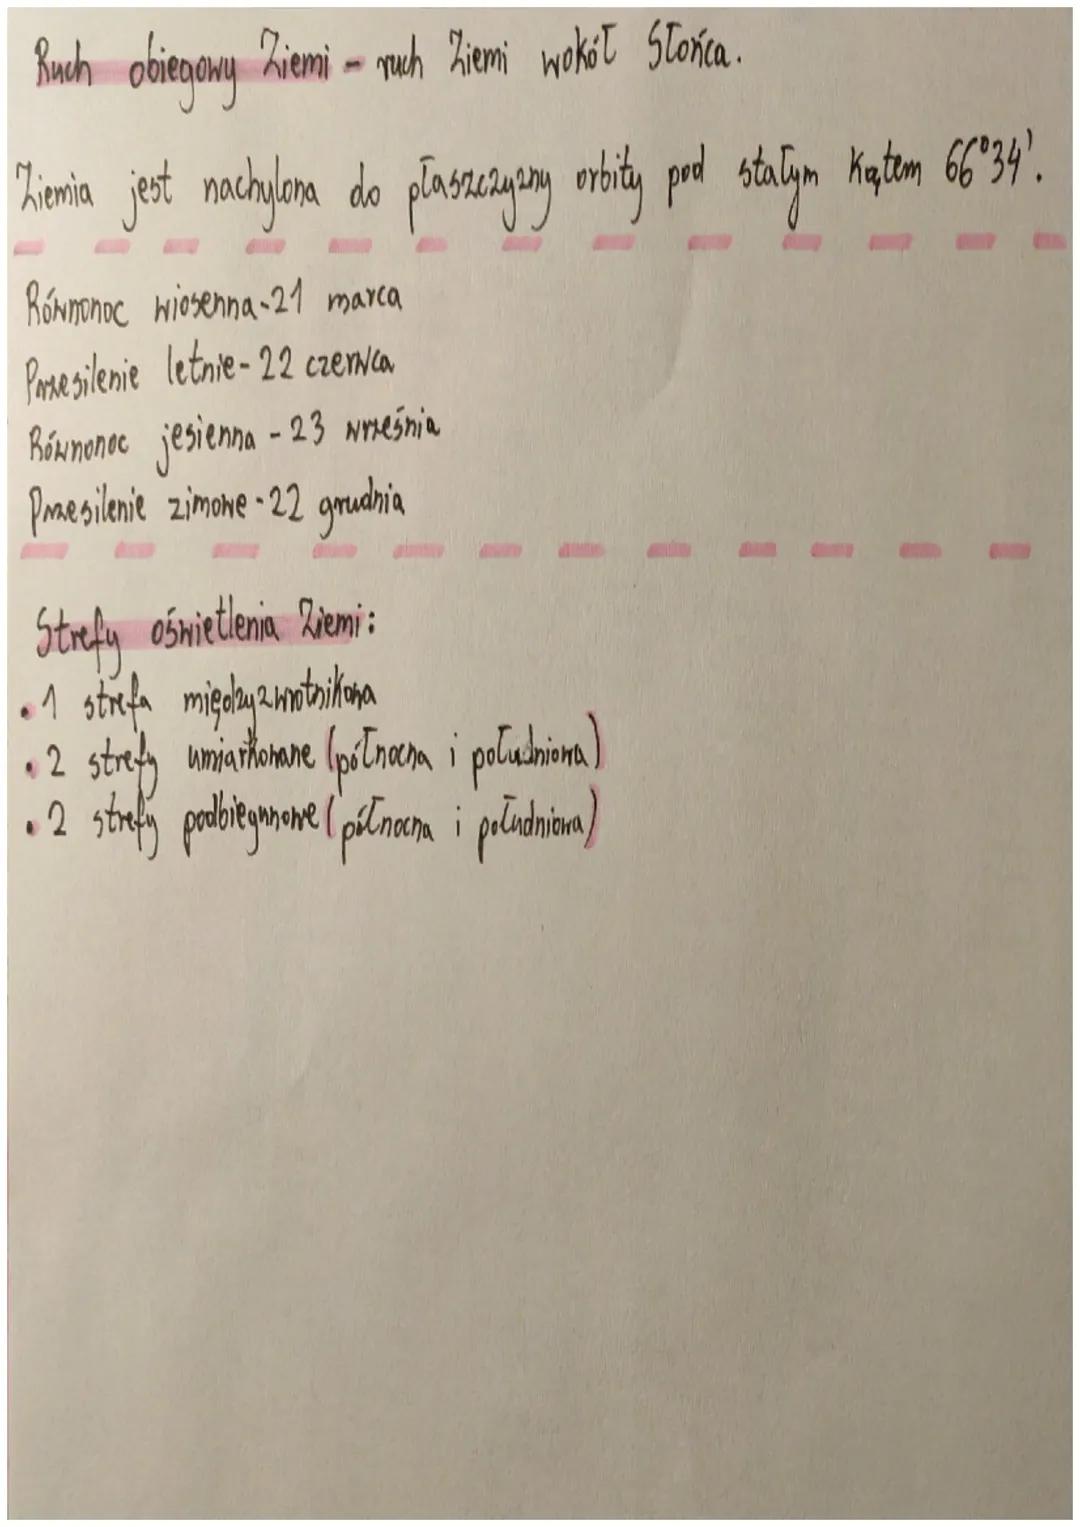 Ruch obiegowy Ziemi - ruch Ziemi wokół Słońca.
Ziemia jest nachylona do płaszczyzny orbity pod stałym kątem 66°34'.
Równonoc wiosenna - 21 marca
Przesilenie letnie - 22 czerwca
Równonoc jesienna - 23 września
Przesilenie zimowe - 22 grudnia
Strefy oświetlenia Ziemi:
• 1 strefa międzyzwrotnikowa
• 2 strefy umiarkowane (północna i południowa)
• 2 strefy podbiegunowe (północna i południowa)